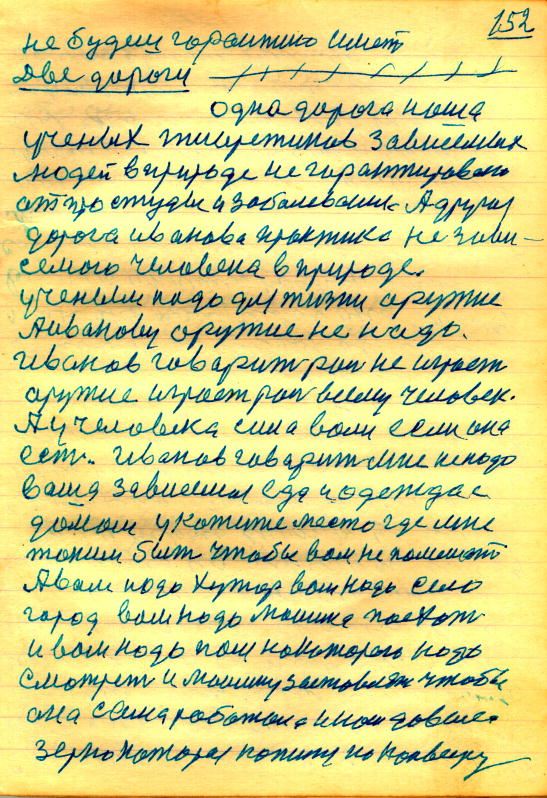 152
не будеш гарантию имет
Две дороги
одна дорога наша
ученых теоретиков зависемых
людей в природе не гарантировано
от простуды и заболевания. А другая
дорога иванова практика не зави-
семого человека в природе.
ученым надо для жизни оружие
Аиванову оружие не надо.
Иванов говарит рол не играет
оружие играет рол всему человек.
А у человека сила воли если она
ест.. Иванов говарит мне ненадо
ваша зависемая еда и одежда с
домом укажите место где мне
можим быт чтобы вам не помешат
А вам надо хутор вам надо село
город вам надо машина поехат
и вам надо пол на которого надо
смотрет и машину заставлят чтобы
она сама работала и нам давала
зерно которая